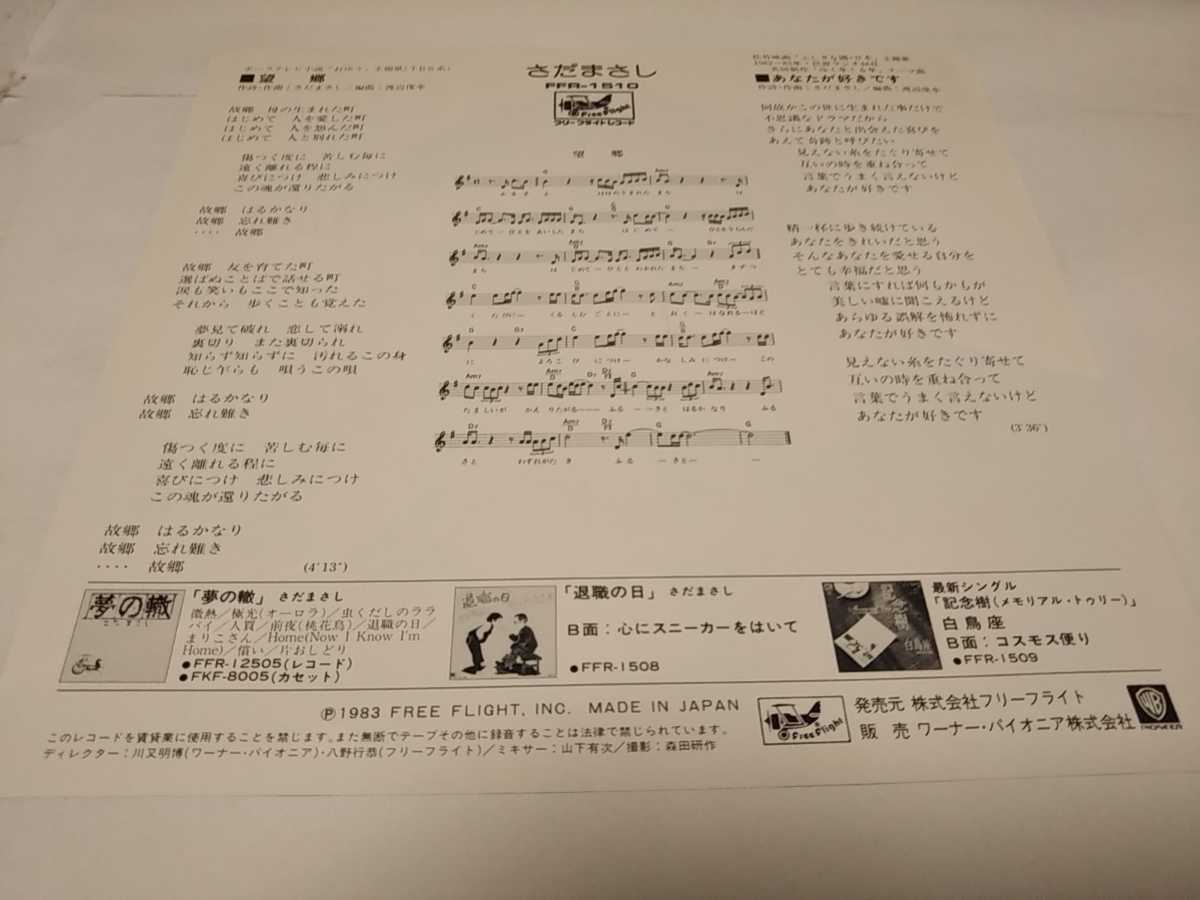 さだまさし
FFR-1510
Free Flight
フリーフライトレコード
ポーラテレビ小説
■望 郷
作詩・作曲:さだまさし/編曲:渡辺俊幸
故郷 母の生まれた町
はじめて 人を愛した町
はじめて 人を怨んだ町
はじめて 人と別れた町
傷つく度に 苦しむ毎に
遠く離れる程に
喜びにつけ 悲しみにつけ
この魂が還りたがる
故郷 はるかなり
故郷 忘れ難き
‥‥ 故郷
故郷 友を育てた町
選ばぬことばで話せる町
涙も笑いもここで知った
それから 歩くことも覚えた
夢見て破れ 恋して溺れ
裏切り また裏切られ
知らず知らずに 汚れるこの身
恥じ乍らも 唄うこの唄
故郷 はるかなり
故郷 忘れ難き
傷つく度に 苦しむ毎に
遠く離れる程に
喜びにつけ 悲しみにつけ
この魂が還りたがる
故郷 はるかなり
故郷 忘れ難き
‥‥ 故郷 (4'13")
望 郷
■あなたが好きです
作詩・作曲:さだまさし/編曲:渡辺俊幸
何故かこの世に生まれた事だけで
不思議なドラマだから
さらにあなたと出会えた喜びを
あえて奇跡と呼びたい
見えない糸をたぐり寄せて
互いの時を重ね合って
言葉でうまく言えないけど
あなたが好きです
精一杯に歩き続けている
あなたをきれいだと思う
そんなあなたを愛せる自分を
とても幸福だと思う
言葉にすれば何もかもが
美しい嘘に聞こえるけど
あらゆる誤解を怖れずに
あなたが好きです
見えない糸をたぐり寄せて
互いの時を重ね合って
言葉でうまく言えないけど
あなたが好きです
(3'36")
夢の轍
さだまさし
「夢の轍」 さだまさし
微熱/極光(オーロラ)/虫くだしのララ
バイ/人買/前夜(桃花鳥)/退職の日/
まりこさん/Home(Now I Know I'm
Home)/償い/片おしどり
●FFR-12505(レコード)
●FKF-8005(カセット)
退職の日
「退職の日」 さだまさし
B面:心にスニーカーをはいて
●FFR-1508
最新シングル
「記念樹(メモリアル・トゥリー)」
白鳥座
B面:コスモス便り
●FFR-1509
Ⓟ1983 FREE FLIGHT, INC. MADE IN JAPAN
Free Flight
発売元 株式会社フリーフライト
販 売 ワーナー・パイオニア株式会社
PIONEER
このレコードを賃貸業に使用することを禁じます。また無断でテープその他に録音することは法律で禁じられています。
ディレクター:川又明博(ワーナー・パイオニア)・八野行恭(フリーフライト)/ミキサー:山下有次/撮影:森田研作